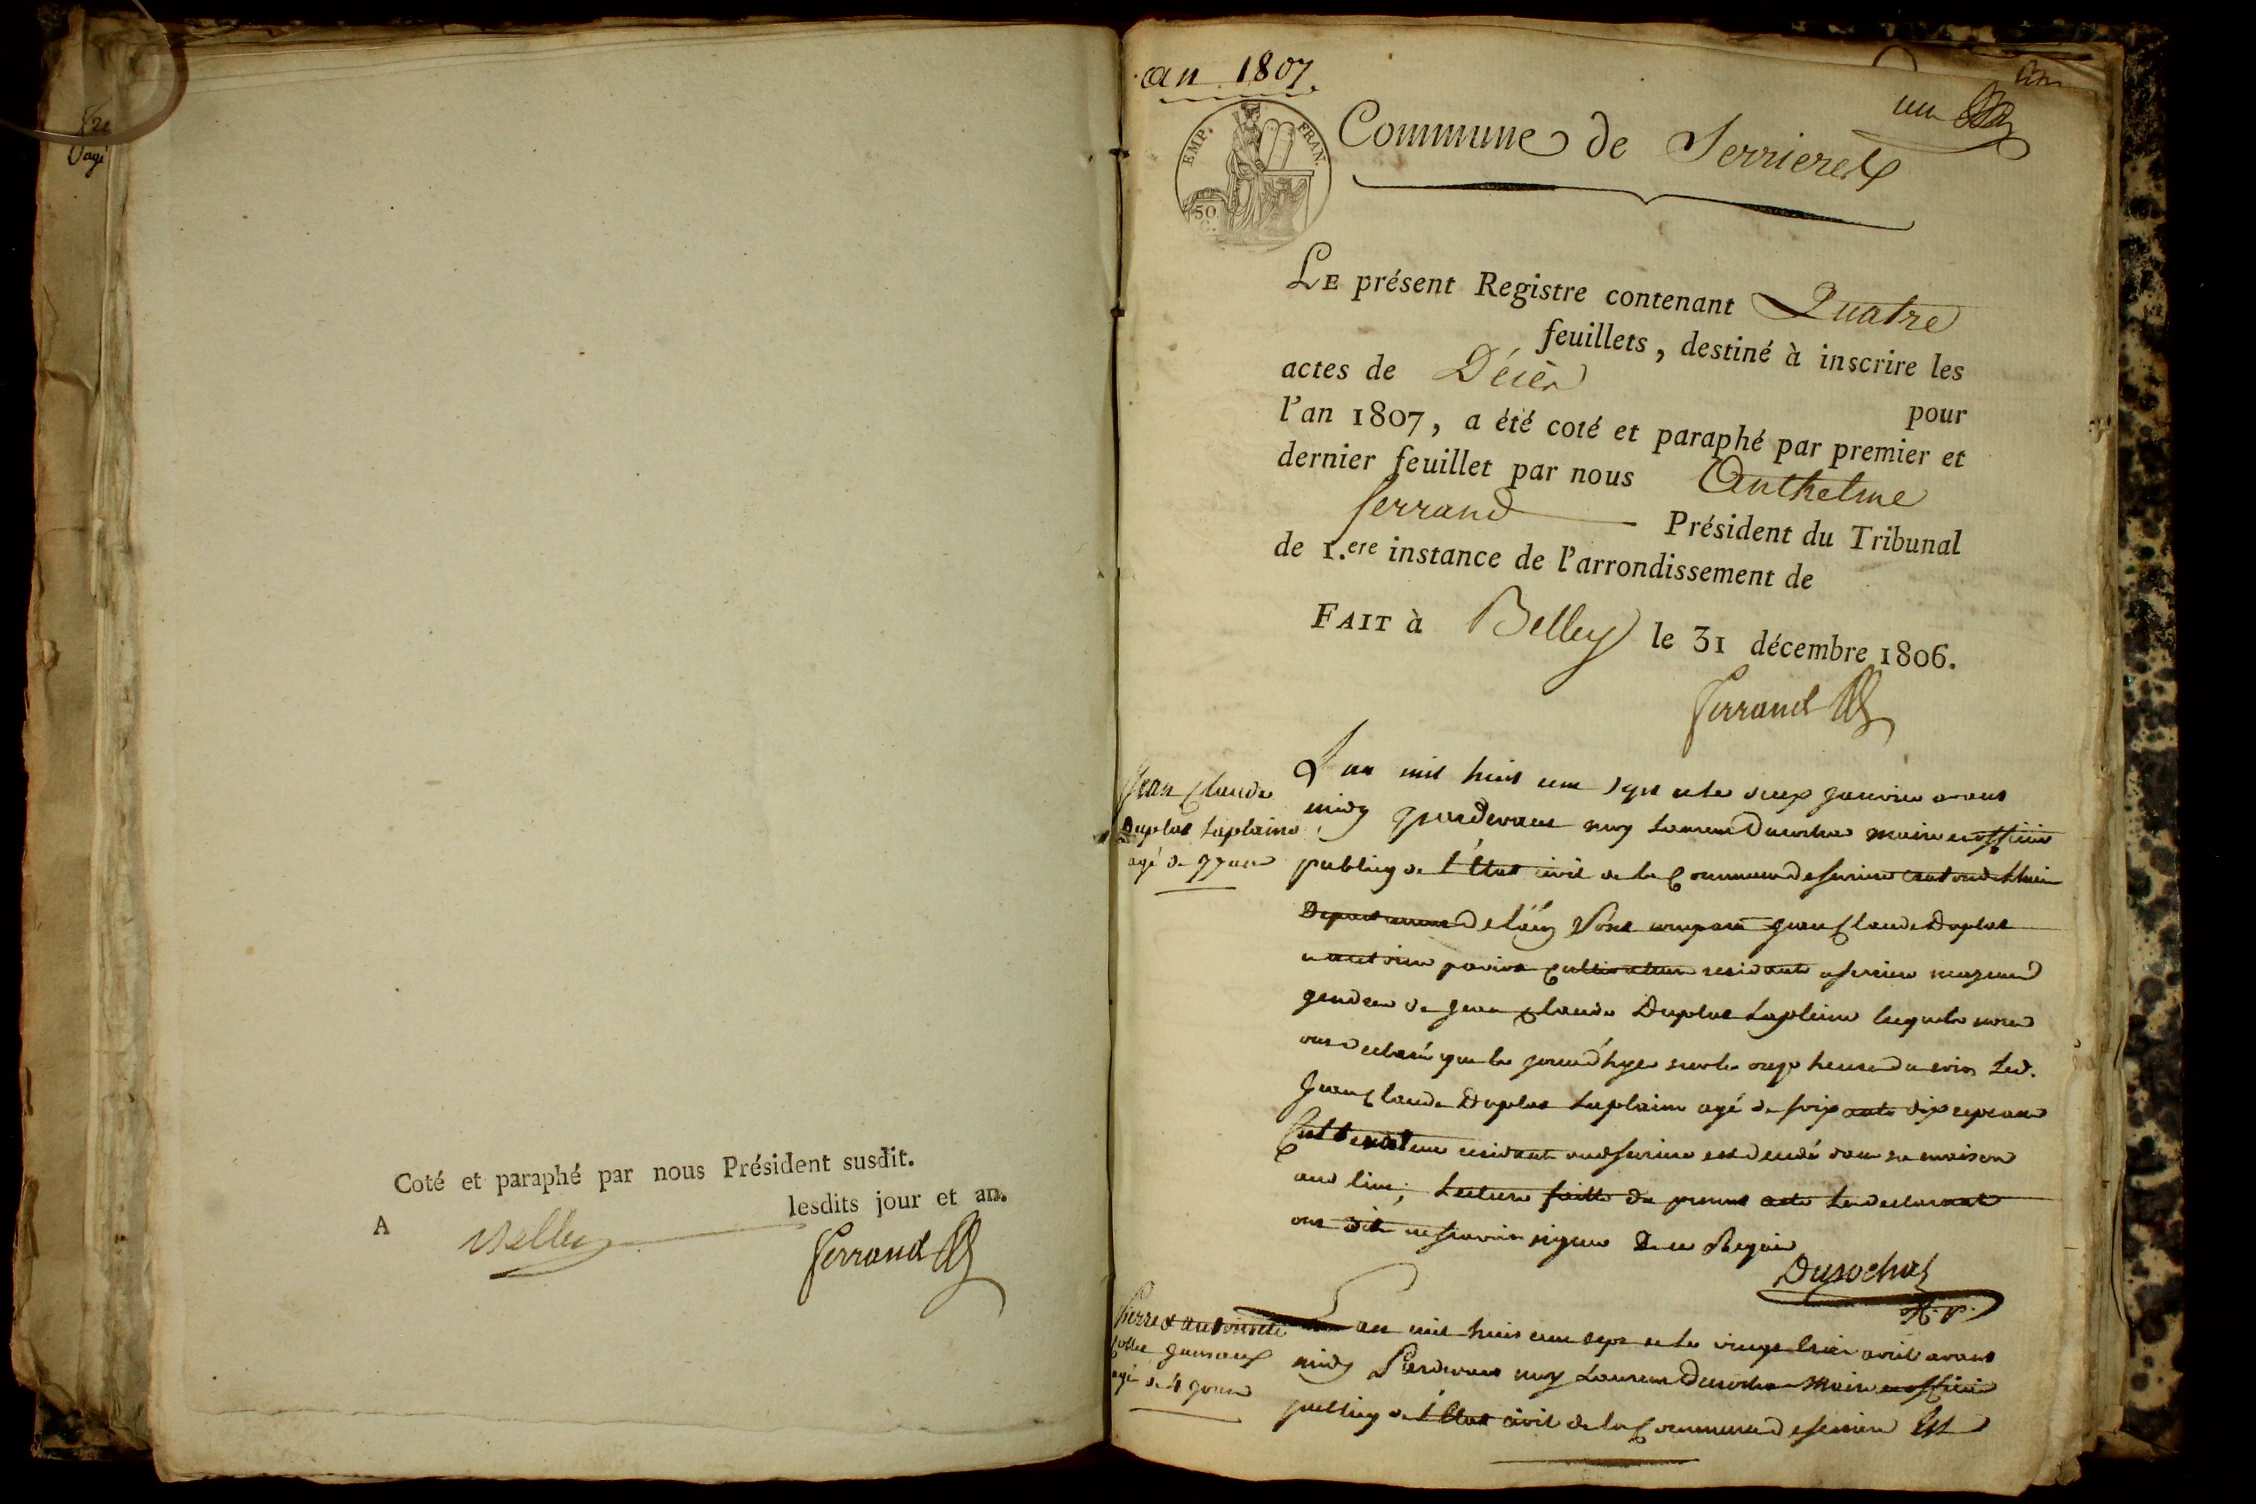 Coté et paraphé par nous Président susdit.
A Belley lesdits jour et an.
Ferrand
an 1807.
un
EMP. FRAN.
50
Commune de Serrieres
LE présent Registre contenant Quatre
feuillets, destiné à inscrire les
actes de Décès
pour
l'an 1807, a été coté et paraphé par premier et
dernier feuillet par nous Anthelme
ferrand Président du Tribunal
de 1.ere instance de l'arrondissement de
FAIT à Belley le 31 décembre 1806.
Ferrand
Jean Claude
Duplat Laplaine
agé de 77 ans
L'an mil huit cent sept et le deux janvier avant
midy pardevant moy Laurent Durochat maire et officier
publicq de l'Etat civil de la Commune de serriere canton de Lhuis
Departement de l'ain sont comparu jean Claude Duplat
et antoine cultivateurs residants a serriere
gendre de jean Claude Duplat Laplaine lequels nous
ont declaré que le jour d'hyer sur les onze heures du soir Led.
jean Claude Duplat Laplaine agé de soixante dix sept ans
Cultivateur residant aud serriere est decedé dans sa maison
aud lieu; Lecture faitte du present acte Les declarants
ont dit ne scavoir signer De ce Requis
Durochat
Pierre & antoinette
jumeaux
agé de 4 jours
L'an mil huit cent sept et le vingt trois avril avant
midy Pardevant moy Laurent Durochat Maire et officier
publicq de l'Etat civil de la Commune de serriere Est